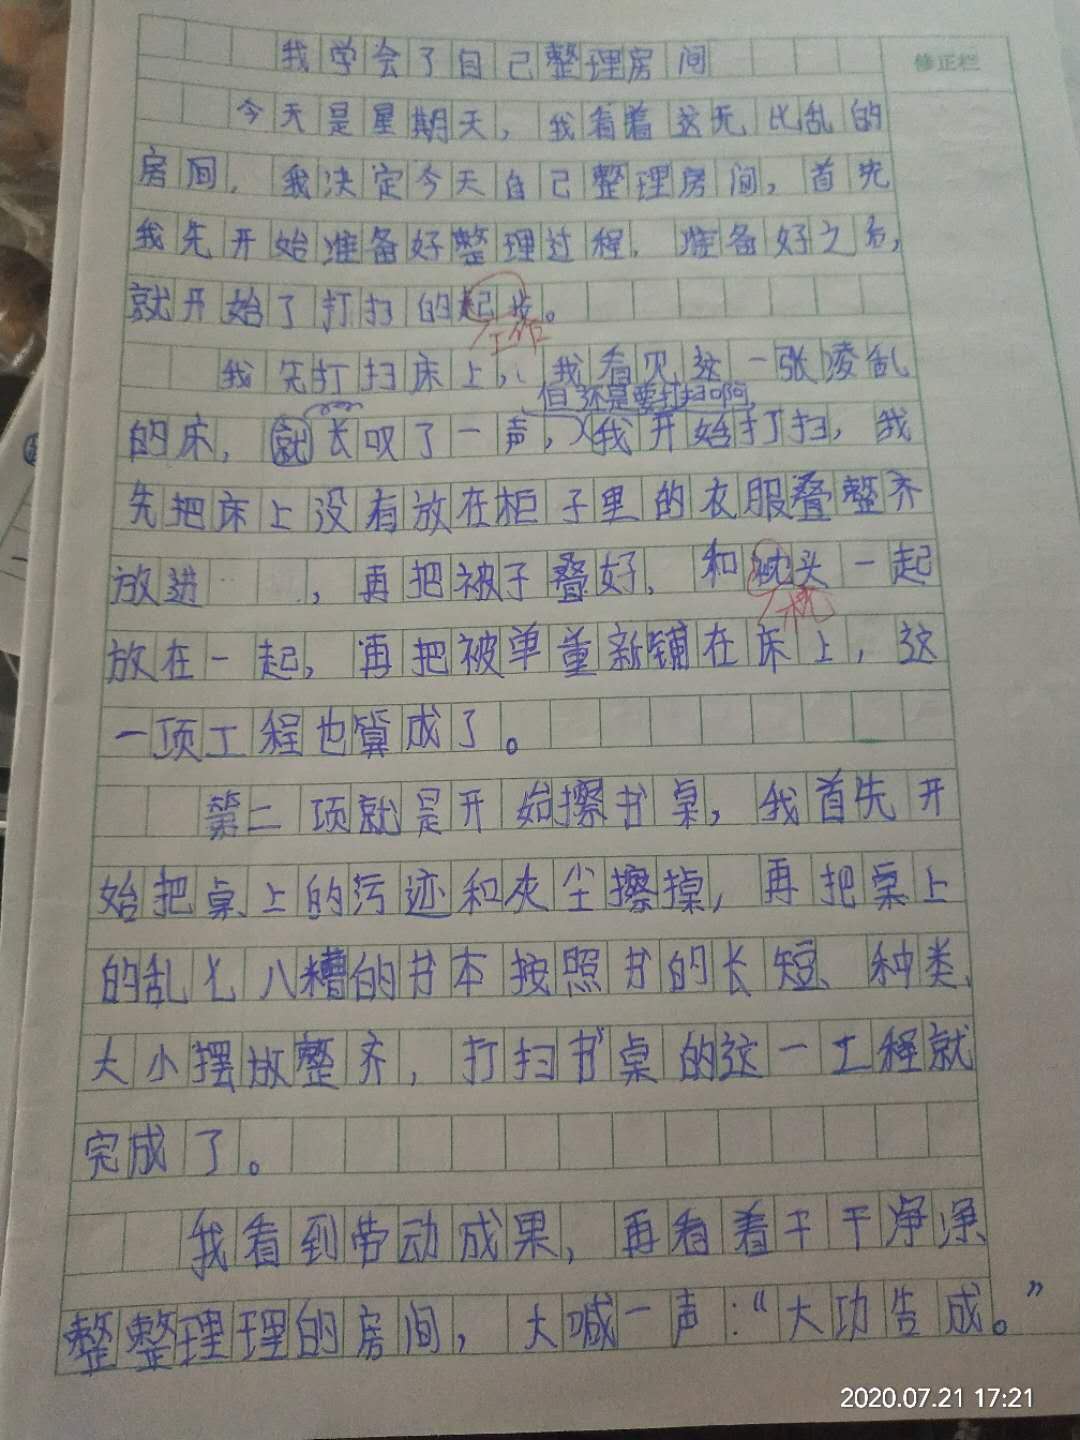 我学会了自己整理房间
修正栏
今天是星期天，我看着这无比乱的
房间，我决定今天自己整理房间，首先
我先开始准备好整理过程，准备好之后，
就开始了打扫的起步。
工作
我先打扫床上，我看见这一张凌乱
但还是要打扫啊，
的床，就长叹了一声，我开始打扫，我
先把床上没有放在柜子里的衣服叠整齐
放进，再把被子叠好，和枕头一起
枕
放在一起，再把被单重新铺在床上，这
一项工程也算成了。
第二项就是开始擦书桌，我首先开
始把桌上的污迹和灰尘擦掉，再把桌上
的乱七八糟的书本按照书的长短、种类、
大小摆放整齐，打扫书桌的这一工程就
完成了。
我看到劳动成果，再看着干干净净、
整整理理的房间，大喊一声：“大功告成。”
2020.07.21 17:21